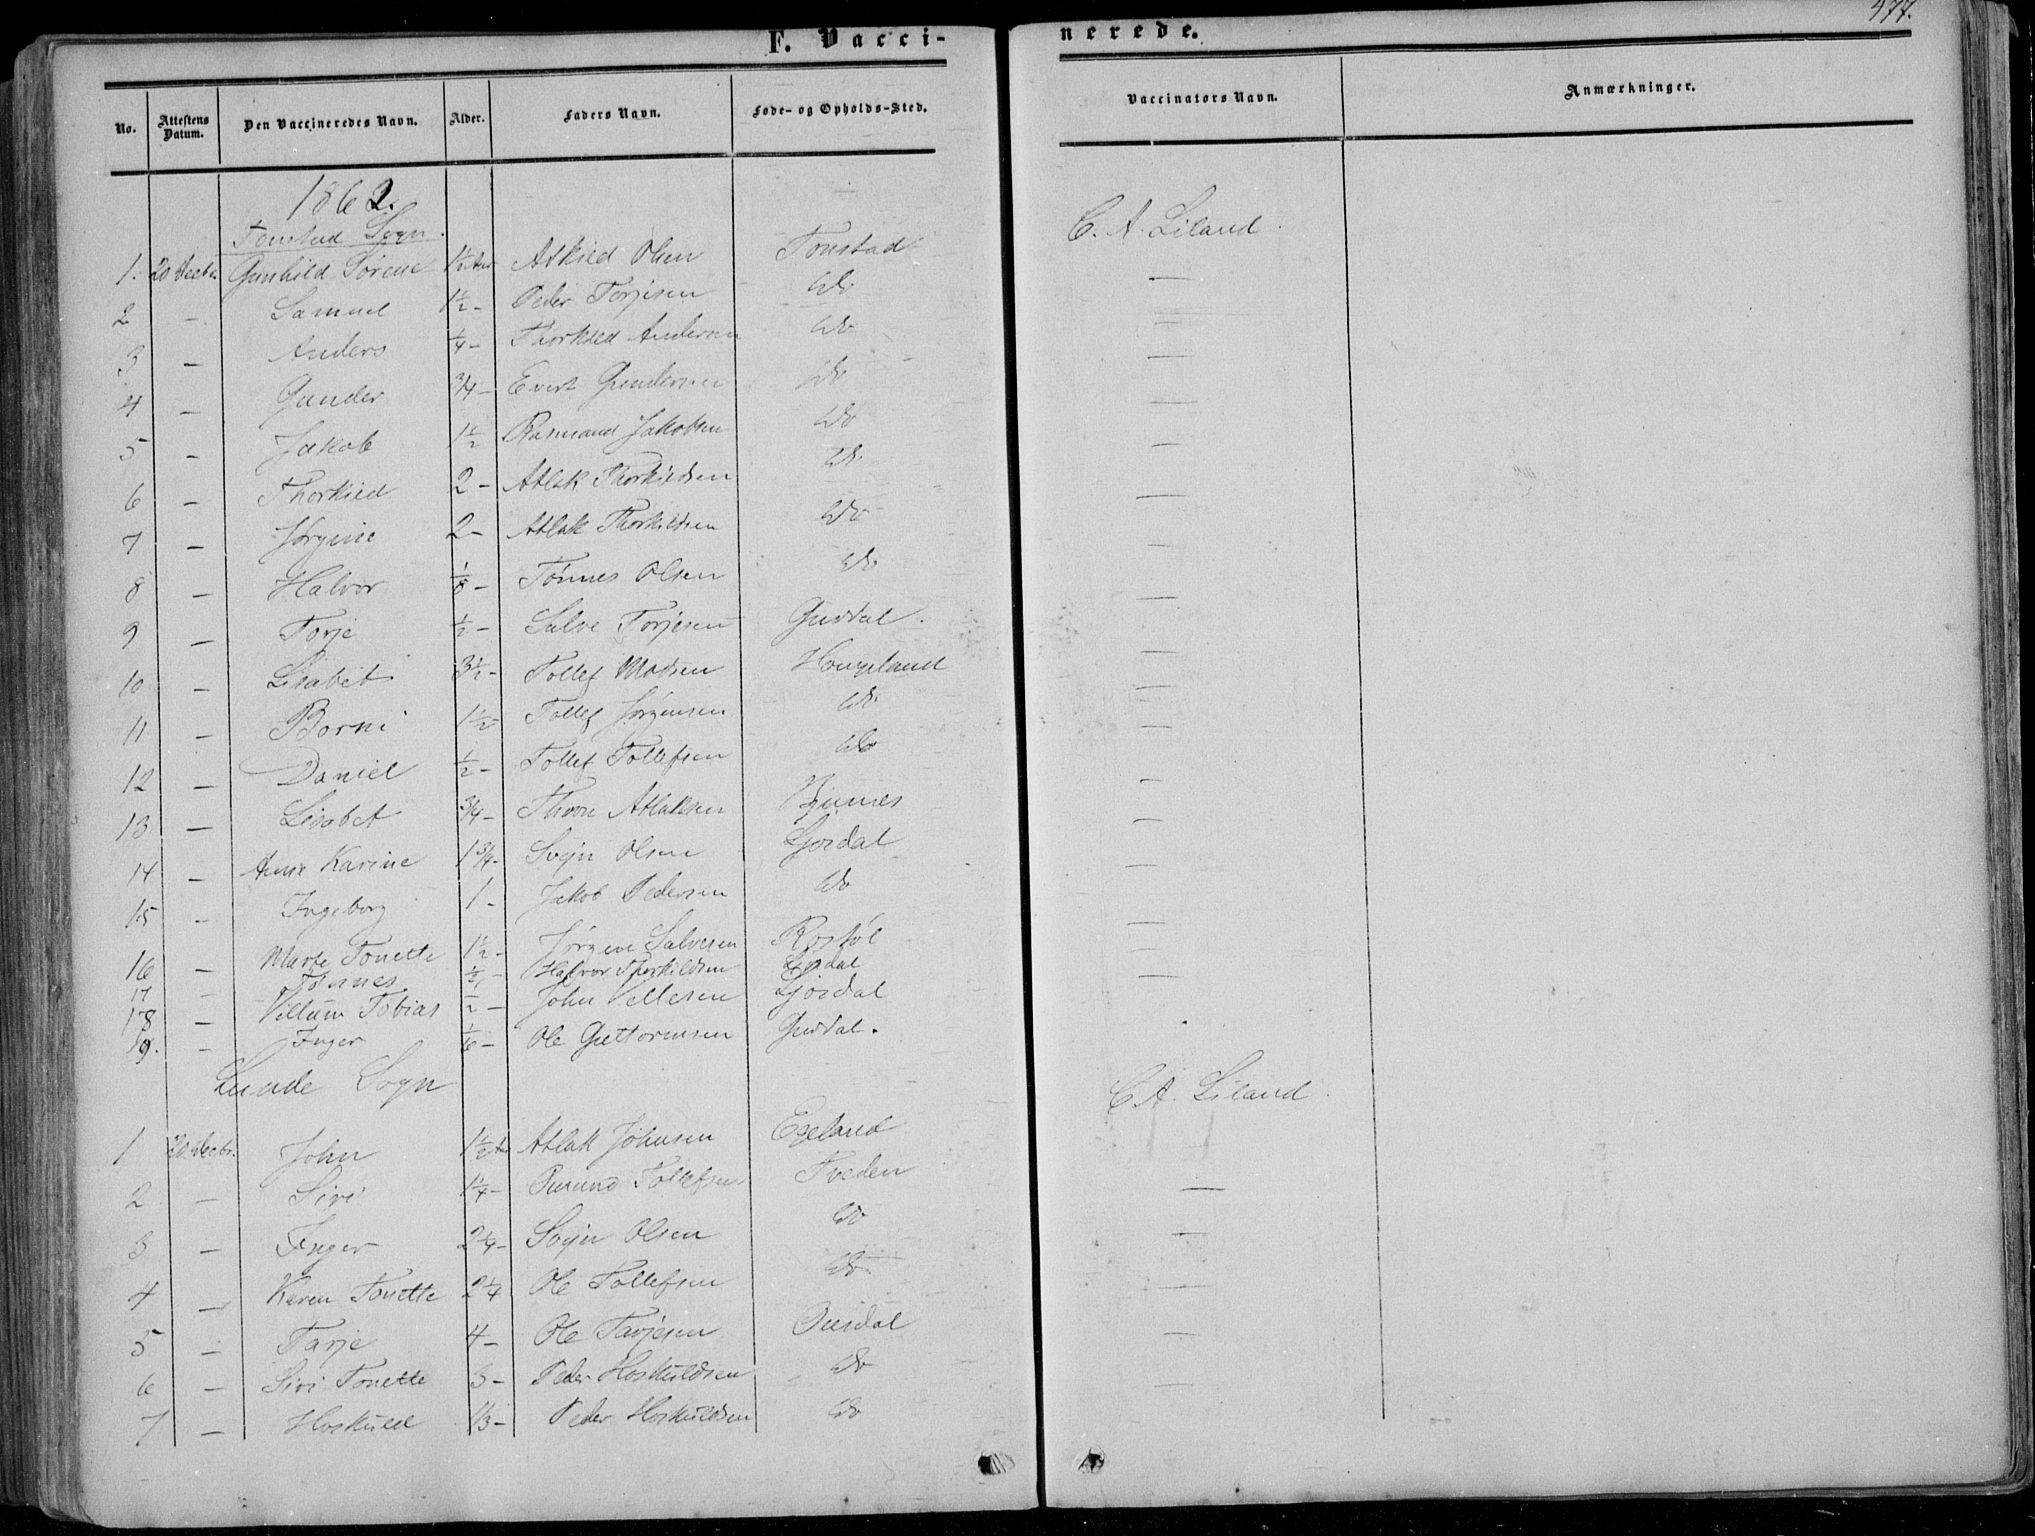 F. Vacci-
nerede.
477.
No. Attestens Datum. Den Vaccineredes Navn. Alder. Faders Navn. Føde- og Opholds-Sted. Vaccinators Navn. Anmærkninger.
1862.
Tonstad Sogn.
1. 20 Decbr. Gunhild Sørene 1 1/2 Aar Atkild Olsen Tonstad C. A. Liland.
2 – Samuel 1 1/2 – Peder Torjesen Do —
3 – Anders 1/4 – Thorkild Andersen Do —
4 – Gunder 3/4 – Evert Gundersen Do —
5 – Jakob 1 1/2 Rasmund Jakobsen Do —
6 – Thorkild 2 – Atlak Thorkildsen Do —
7 – Jørgine 2 – Atlak Thorkildsen Do —
8 – Halvor 1/8 – Tönnes Olsen Do —
9 – Torje 1/2 – Salve Torjesen Gusdal. —
10 – Lisabet 3 1/2 – Tollef Madsen Hougeland —
11 – Borni 1 1/2 – Tollef Jørgensen Do —
12 – Daniel 1/2 – Tollef Tollefsen Do —
13 – Lisabet 3/4 – Thore Atlaksen —
14 – Anne Karine 1 3/4 – Svejn Olsen Ljosdal —
15 – Ingeborg 1 – Jakob Pedersen Do —
16 – Marte Tonette 1 1/2 – Jørgen Salvesen Rostøl —
17 – Tönnes – Halvor Thorkildsen Ljosdal —
18 – Villum Tobias 1/2 – John Villesen Ljosdal —
19. – Inger 1/6 – Ole Guttormsen Gusdal.
Lunde Sogn
C. A. Liland.
1 20 Decbr. John 1 1/2 Aar Atlak Johnsen Egeland
2 – Siri 1 1/4 – Tollefsen Tveden —
3 – Inger 2 1/4 – Svejn Olsen Do —
4 – Karen Tonette 2 1/4 Ole Tollefsen Do —
5 – Tarje 4 – Ole Tarjesen Ousdal —
6 – Siri Tonette 3 – Peder Hoskuldsen Do —
7 – Hoskuld 1/3 – Peder Hoskuldsen Do